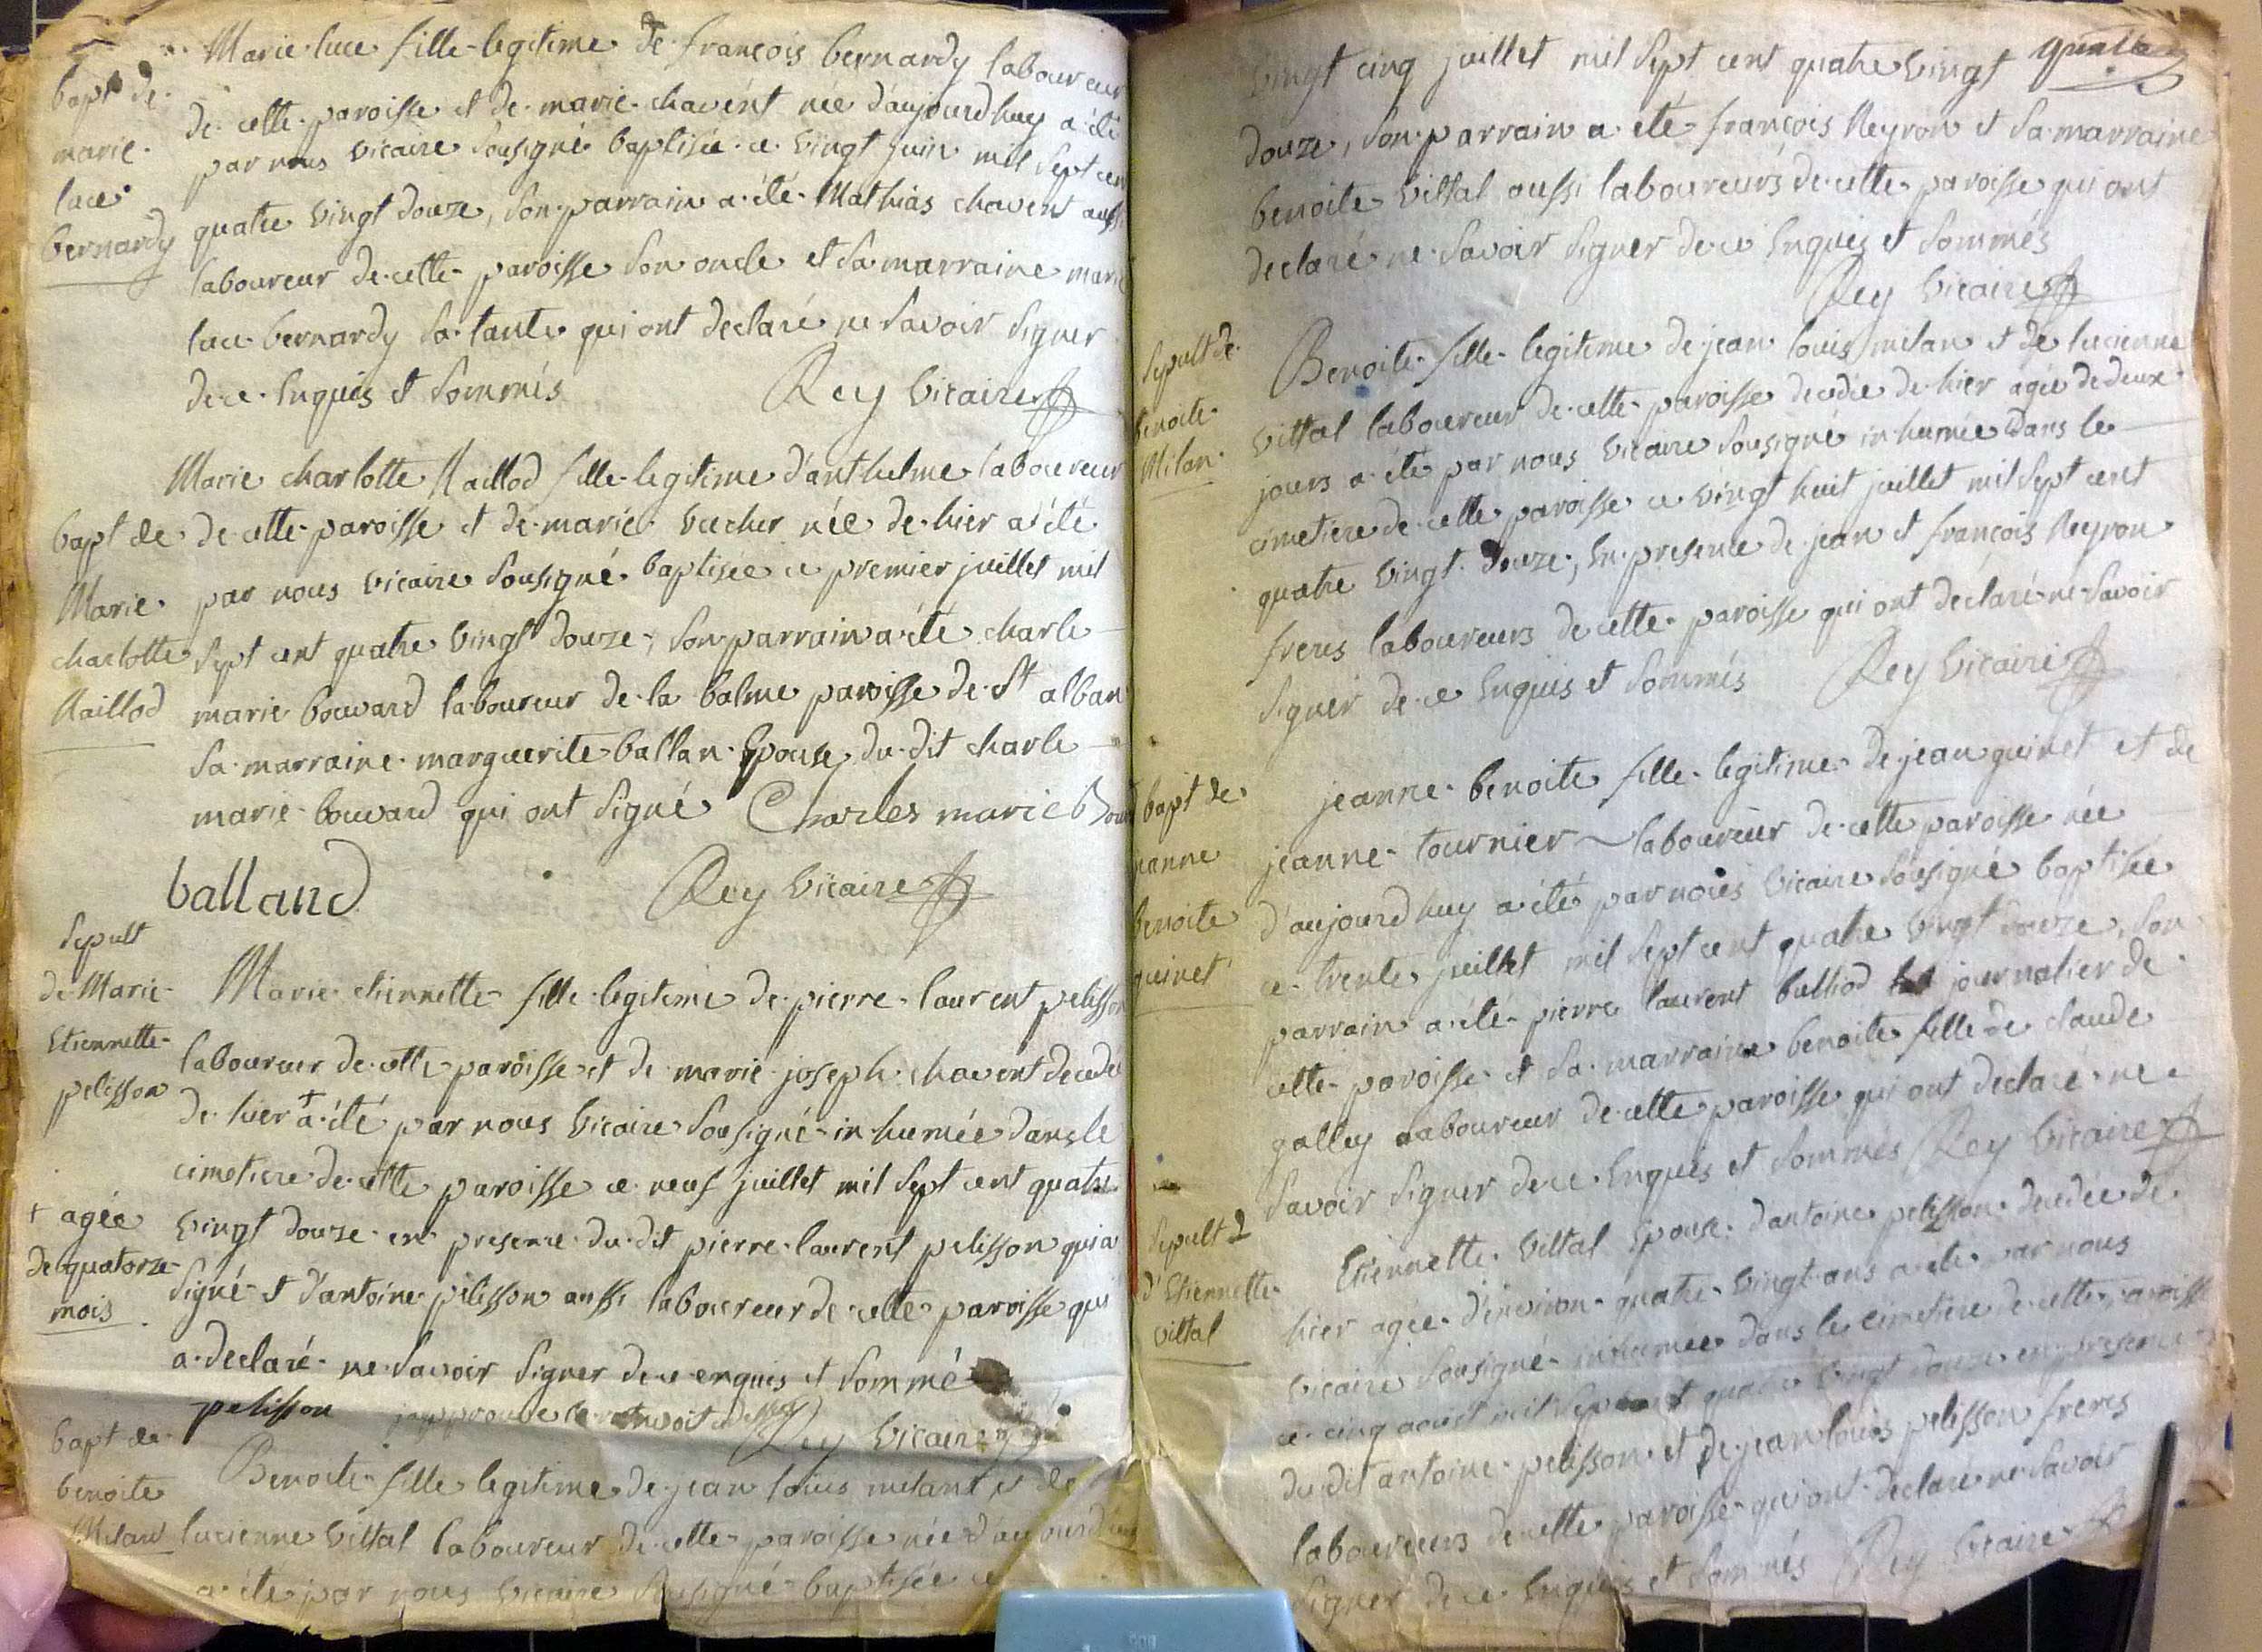 bapt de
marie
luce
bernardy
Marie luce fille legitime de françois bernardy laboureur
de cette paroisse et de marie chavent née d'aujourdhuy a été
par nous vicaire sousigné baptisée ce vingt juin mil sept cen
quatre vingt douze, son parrain a été Mathias chavent aussi
laboureur de cette paroisse son oncle et sa marraine marie
luce bernardy sa tante qui ont declaré ne savoir signer
de ce Enquis et sommés Rey vicaire
bapt de
Marie
charlotte
Raillod
Marie charlotte Raillod fille legitime d'anthelme laboureur
de cette paroisse et de marie vucher née de hier a été
par nous vicaire sousigné baptisée ce premier juillet mil
sept cent quatre vingt douze, son parrain a été charle
marie bouvard laboureur de la balme paroisse de St alban
sa marraine marguerite ballan Epouse du dit charle
marie bouvard qui ont signé Charles marie Bou
balland Rey vicaire
Sepult
de Marie
Etiennette
pelisson
Marie etiennette fille legitime de pierre laurent pelisson
laboureur de cette paroisse et de marie joseph chavent decedé
de hier + a été par nous vicaire sousigné inhumée dans le
cimetiere de cette paroisse ce neuf juillet mil sept cent quatre
vingt douze en presence du dit pierre laurent pelisson qui a
signé et d'antoine pelisson aussi laboureur de cette paroisse qui
a declaré ne savoir signer de ce enquis et sommé
+ agée
de quatorze
mois
pelisson japprouve le renvoit
Rey vicaire
bapt de
benoite
Milan
Benoite fille legitime de jean louis milant et de
lucienne vittal laboureur de cette paroisse née d'aujourd'huy
a été par nous vicaire sousigné baptisée ce
vingt cinq juillet mil sept cent quatre vingt
douze, son parrain a été françois Reyron et sa marraine
benoite vittal aussi laboureurs de cette paroisse qui ont
declaré ne savoir signer de ce Enquis et sommés
Rey vicaire
Sepult de
benoite
Milan
Benoite fille legitime de jean louis milan et de lucienne
vittal laboureur de cette paroisse decedée de hier agée de deux
jours a été par nous vicaire sousigné inhumée dans le
cimetiere de cette paroisse ce vingt huit juillet mil sept cent
quatre vingt douze, En presence de jean et françois Reyron
freres laboureurs de cette paroisse qui ont déclaré ne savoir
signer de ce Enquis et sommés Rey vicaire
bapt de
jeanne
benoite
guinet
jeanne benoite fille legitime de jean guinet et de
jeanne tournier laboureur de cette paroisse née
d'aujourdhuy a été par nous vicaire sousigné baptisée
ce trente juillet mil sept cent quatre vingt douze, son
parrain a été pierre laurent bulliod journalier de
cette paroisse et sa marraine benoite fille de claude
galley laboureur de cette paroisse qui ont declaré ne
savoir signer de ce Enquis et sommés Rey vicaire
Sepult
d'Etiennette
vittal
Etiennette vittal Epouse d'antoine pelisson decedée de
hier agée d'environ quatre vingt ans a été par nous
vicaire sousigné inhumée dans le cimetiere de cette paroisse
ce cinq aoust mil sept cent quatre vingt douze en presence
du dit antoine pelisson et de jean louis pelisson freres
laboureurs de cette paroisse qui ont declaré ne savoir
signer de ce Enquis et sommés Rey vicaire